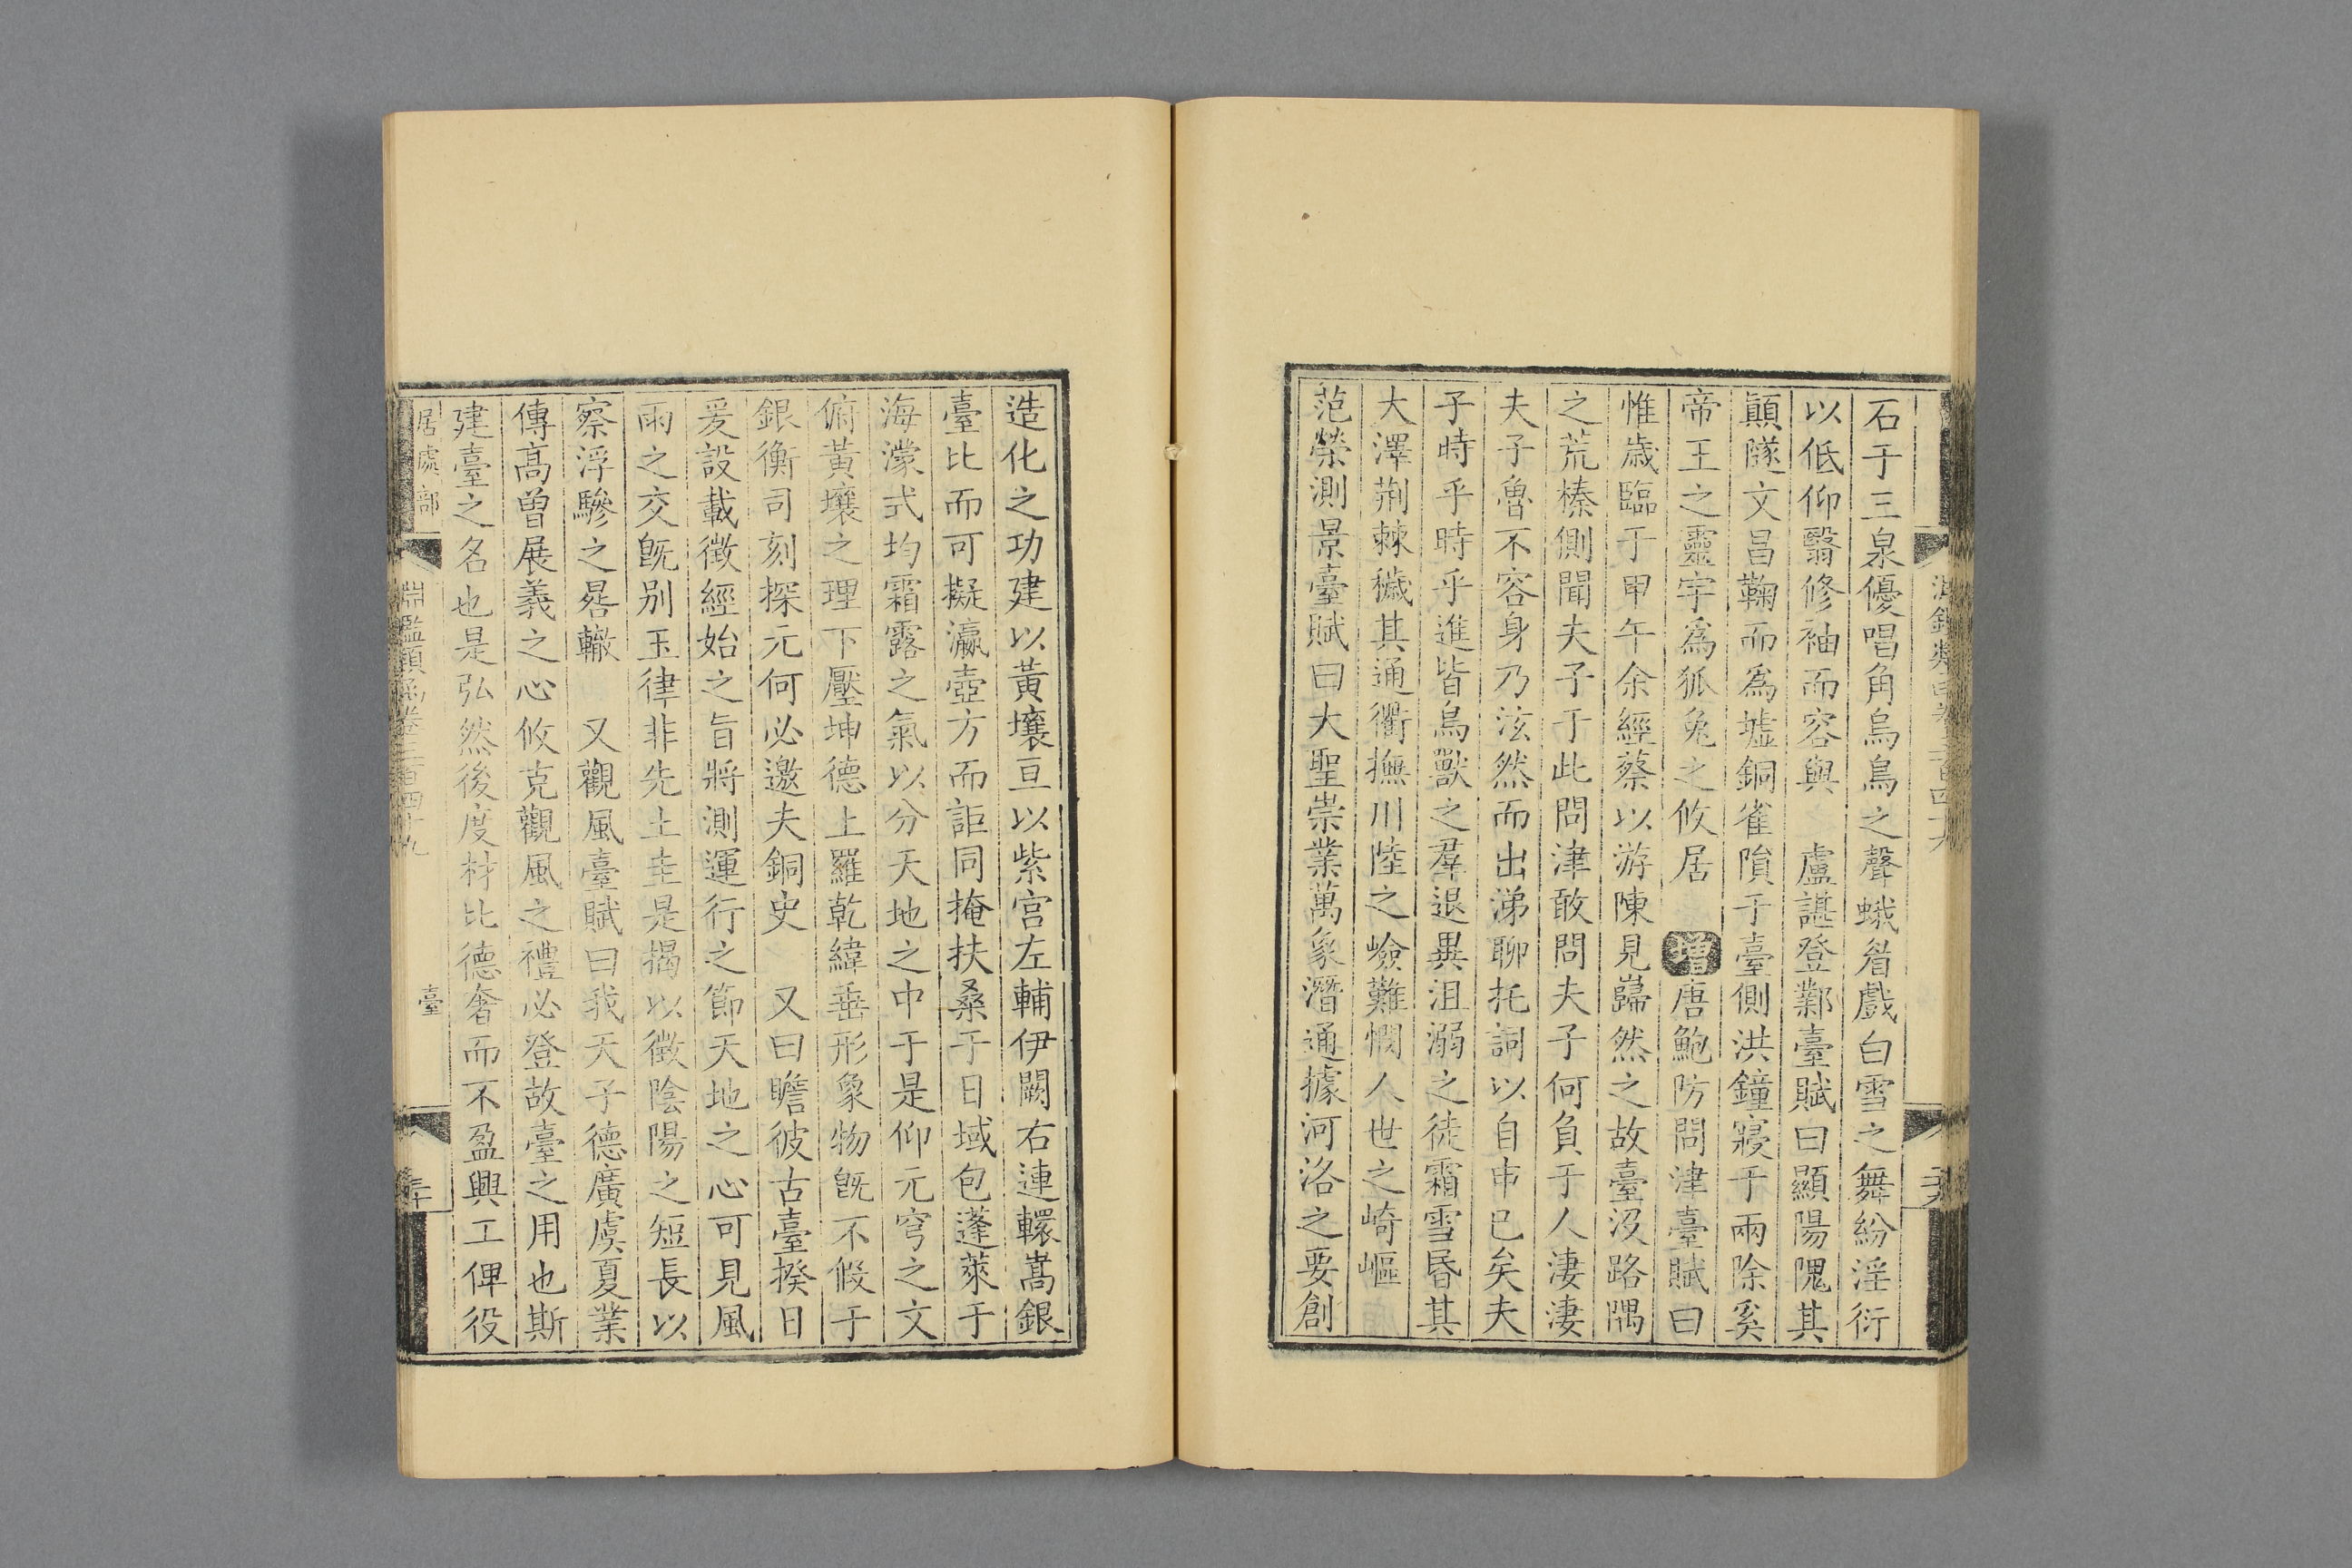 石于三泉優唱角烏鳥之聲蛾眉戲白雪之舞紛淫衍
以低仰翳修袖而容與　盧諶登鄴臺賦曰顯陽隗其
顚隧文昌鞠而爲墟銅雀隕于臺側洪鐘寢于兩除奚
帝王之靈宇爲狐兔之攸居　增唐鮑防問津臺賦曰
惟歳臨于甲午余經蔡以游陳見巋然之故臺没路隅
之荒榛側聞夫子于此問津敢問夫子何負于人淒淒
夫子魯不容身乃泫然而出涕聊托詞以自申已矣夫
子時乎時乎進皆鳥獸之羣退異沮溺之徒霜雪昏其
大澤荆棘穢其通衢撫川陸之嶮難憫人世之崎嶇
范榮測景臺賦曰大聖崇業萬象潛通據河洛之要創
造化之功建以黄壤亘以紫宫左輔伊闕右連轘嵩銀
臺比而可擬瀛壺方而詎同掩扶桑于日域包蓬萊于
海濛式均霜露之氣以分天地之中于是仰元穹之文
俯黄壤之理下壓坤德上羅乾緯垂形象物旣不假于
銀衡司刻探元何必邀夫銅史　又曰瞻彼古臺揆日
爰設載徵經始之旨將測運行之節天地之心可見風
雨之交旣别玉律非先土圭是揭以徵陰陽之短長以
察浮驂之晷轍　又觀風臺賦曰我天子德廣虞夏業
傳高曾展義之心攸克觀風之禮必登故臺之用也斯
建臺之名也是弘然後度材比德奢而不盈興工俾役
居處部
淵鑑類函卷三百四十九
臺
三十